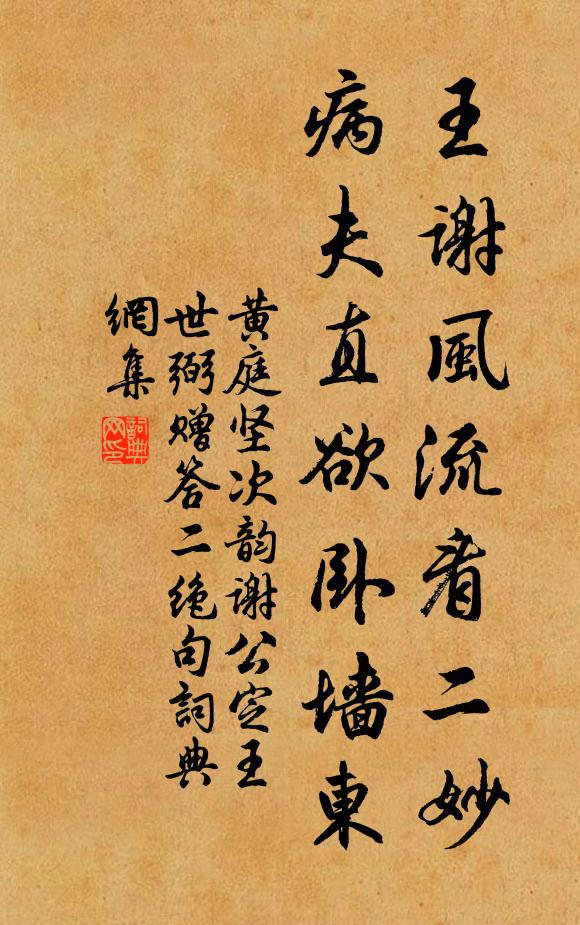 王谢風流看二妙
病夫直欲卧墙東
黄庭坚次韵谢公定王
世弼赠答二绝句詞典
網集
詞典
网印